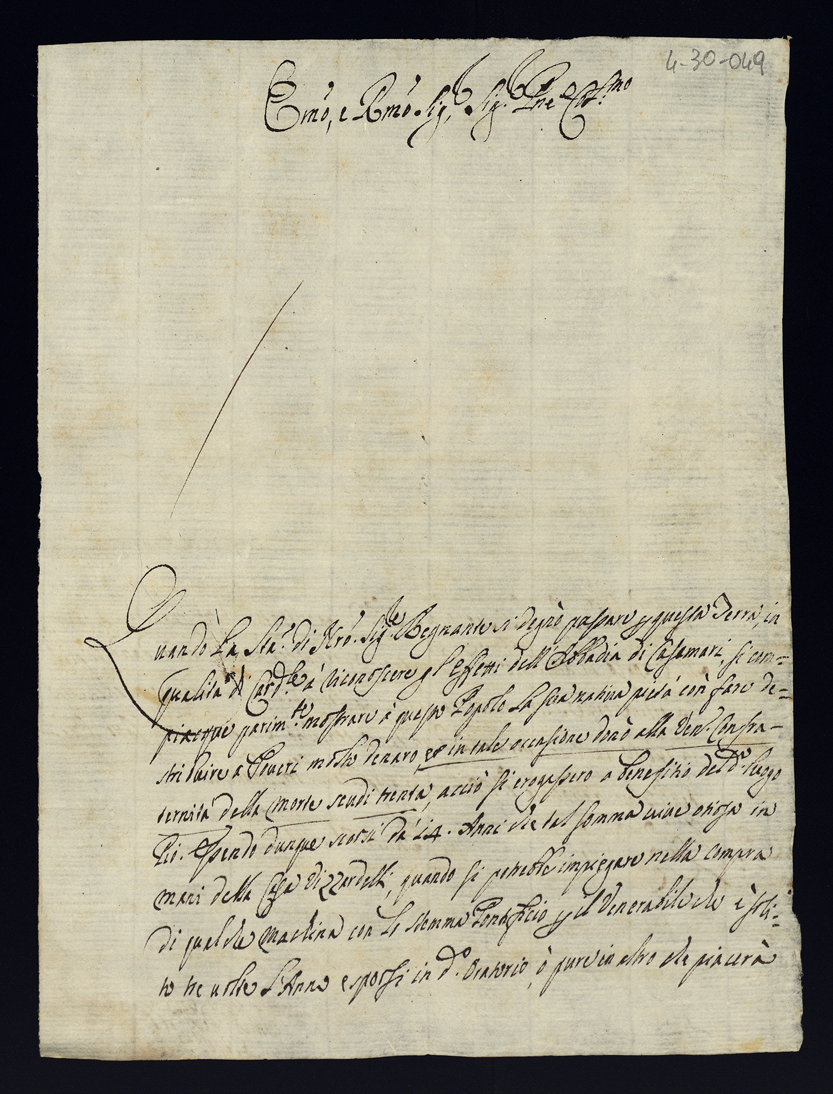 4-30-049
Emo, e Rmo Sig.r, Sig.r Pne Col.mo
Quando La Sta. di Nro. Sig.re Regnante si degnò passare p questa Terra, in
qualità di Card.le à riconoscere g l'effetti dell'Abbadia di Casamari, si com=
piacque parim.te mostrare à questo Popolo La sua nativa pietà con fare de=
stribuire a Poveri molto denaro, et in tale occasione donò alla Ven. Confra-
ternita della Morte scudi trenta, acciò si erogassero a benefitio del d.o luogo
Pio. Essendo dunque scorsi da 24. Anni che tal somma vive otiosa in
mani della Casa Vizzardelli, quando si potrebbe impiegare nella compra
di qualche Machina con lo stemma Pontificio p il Venerabile che è soli=
to tre volte l'Anno esporsi in d.o Oratorio, ò pure in altro che piacerà